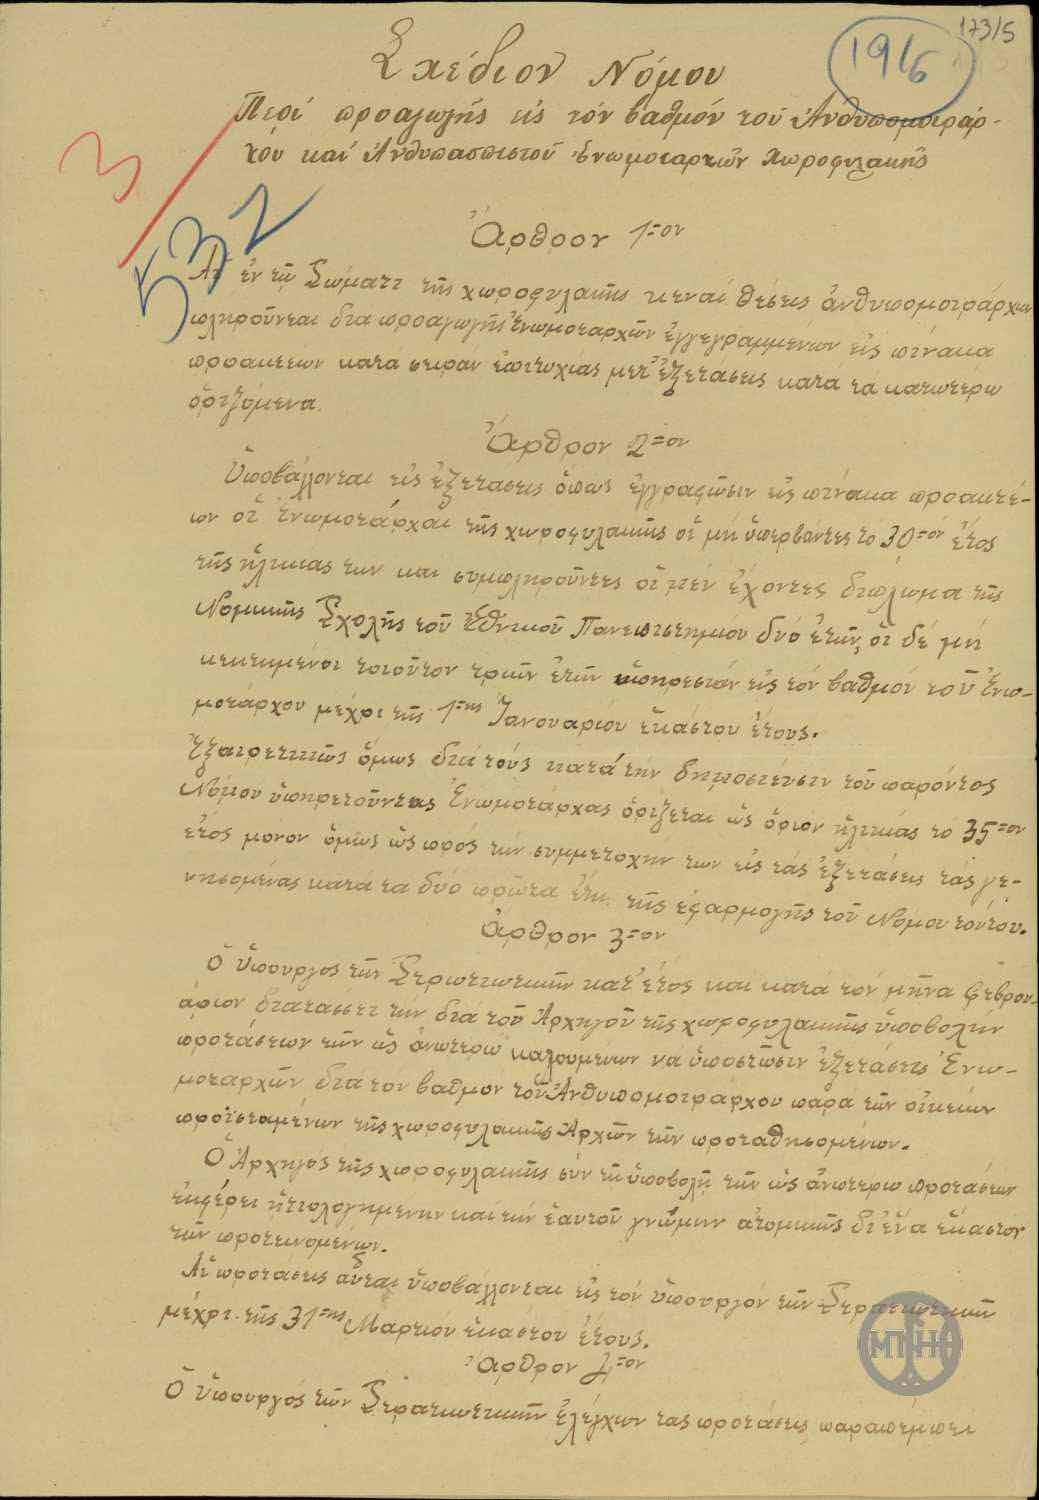 173/5
1916
Σχέδιον Νόμου
Περί προαγωγῆς εἰς τόν βαθμόν του Ἀνθυπομοιράρ-
χου καί Ἀνθυπασπιστοῦ Ἐνωμοταρχῶν Χωροφυλακῆς
3
532
Ἄρθρον 1=ον
Αἱ ἐν τῷ Σώματι τῆς χωροφυλακῆς κεναί θέσεις ἀνθυπομοιράρχων
πληροῦνται δια προαγωγῆς Ἐνωμοταρχῶν ἐγγεγραμμένων εἰς πίνακα
προακτέων κατά σειράν ἐπιτυχίας μετ' ἐξετάσεις κατά τά κατωτέρω
ὁριζόμενα.
Ἄρθρον 2=ον
Ὑποβάλλονται εἰς ἐξετάσεις ὅπως ἐγγραφῶσιν εἰς πίνακα προακτέ-
ων οἱ Ἐνωμοτάρχαι τῆς χωροφυλακῆς οἱ μή ὑπερβάντες τό 30=όν ἔτος
τῆς ἡλικίας των και συμπληροῦντες οἱ μέν ἔχοντες δίπλωμα τῆς
Νομικῆς Σχολῆς τοῦ Ἐθνικοῦ Πανεπιστημίου δύο ἐτῶν, οἱ δέ μή
κεκτημένοι τοιοῦτον τριῶν ἐτῶν ὑπηρεσίαν εἰς τόν βαθμόν τοῦ Ἐνω-
μοτάρχου μέχρι τῆς 1=ης Ἰανουαρίου ἑκάστου ἔτους.
Ἐξαιρετικῶς ὅμως διά τούς κατά τήν δημοσίευσιν τοῦ παρόντος
Νόμου ὑπηρετοῦντας Ἐνωμοτάρχας ὁρίζεται ὡς ὅριον ἡλικίας τό 35=ον
ἔτος μόνον ὅμως ὡς πρός τήν συμμετοχήν των εἰς τάς ἐξετάσεις τάς γε-
νησομένας κατά τα δύο πρῶτα ἔτη τῆς ἐφαρμογῆς τοῦ Νόμου τούτου.
Ἄρθρον 3=ον
Ὁ Ὑπουργός τῶν Στρατιωτικῶν κατ' ἔτος και κατά τόν μῆνα Φεβρου-
άριον διατάσσει τήν διά τοῦ Ἀρχηγοῦ τῆς χωροφυλακῆς ὑποβολήν
προτάσεων τῶν ὡς ἀνωτέρω καλουμένων νά ὑποστῶσιν ἐξετάσεις Ἐνω-
μοταρχῶν διά τον βαθμόν τοῦ Ἀνθυπομοιράρχου παρά τῶν οἰκείων
προϊσταμένων τῆς χωροφυλακῆς Ἀρχῶν τῶν προταθησομένων.
Ὁ Ἀρχηγός τῆς χωροφυλακῆς σύν τῇ ὑποβολῇ τῶν ὡς ἀνωτέρω προτάσεων
ἐκφέρει ᾐτιολογημένην καί τήν ἑαυτοῦ γνώμην ἀτομικῶς δι' ἕνα ἕκαστον
τῶν προτεινομένων.
Αἱ προτάσεις αὗται ὑποβάλλονται εἰς τόν Ὑπουργόν τῶν Στρατιωτικῶν
μέχρι τῆς 31=ης Μαρτίου ἑκάστου ἔτους.
Ἄρθρον 4=ον
Ὁ Ὑπουργός τῶν Στρατιωτικῶν ἐλέγχων τας προτάσεις παραπέμπει